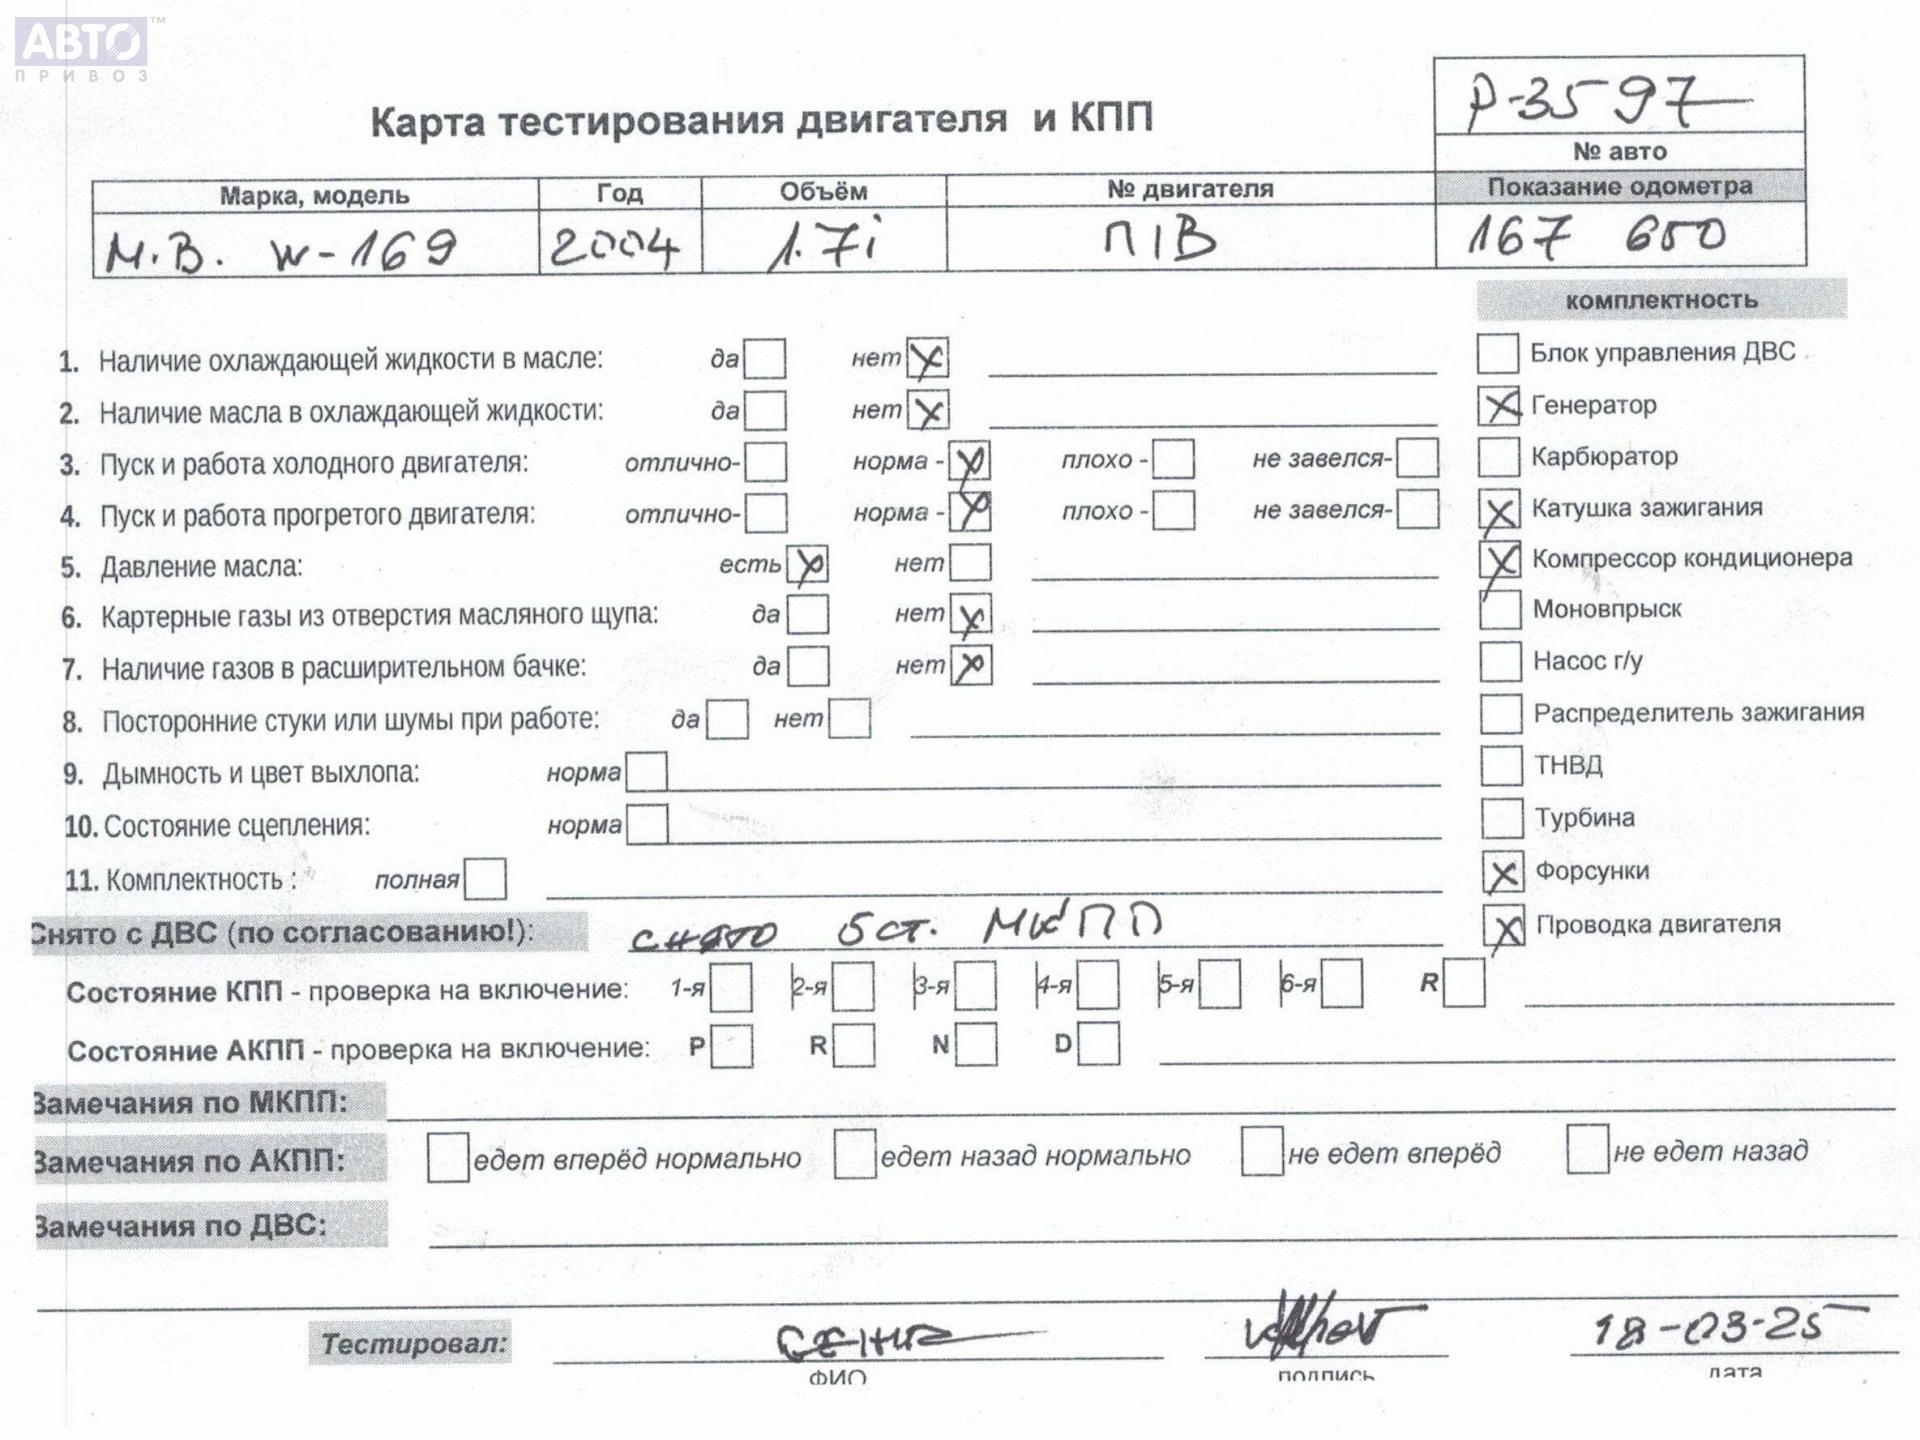 АВТО™
ПРИВОЗ
Р-3597
Карта тестирования двигателя и КПП
№ авто
Марка, модель Год Объём № двигателя Показание одометра
М.В. W-169 2004 1.7i П1В 167 650
комплектность
1. Наличие охлаждающей жидкости в масле: да нет x
Блок управления ДВС
2. Наличие масла в охлаждающей жидкости: да нет x
x Генератор
3. Пуск и работа холодного двигателя: отлично- норма - x плохо - не завелся-
Карбюратор
4. Пуск и работа прогретого двигателя: отлично- норма - x плохо - не завелся-
x Катушка зажигания
5. Давление масла: есть x нет
x Компрессор кондиционера
6. Картерные газы из отверстия масляного щупа: да нет x
Моновпрыск
7. Наличие газов в расширительном бачке: да нет x
Насос г/у
8. Посторонние стуки или шумы при работе: да нет
Распределитель зажигания
9. Дымность и цвет выхлопа: норма
ТНВД
10. Состояние сцепления: норма
Турбина
11. Комплектность : полная
x Форсунки
Снято с ДВС (по согласованию!): снято 5ст. МКПП
x Проводка двигателя
Состояние КПП - проверка на включение: 1-я 2-я 3-я 4-я 5-я 6-я R
Состояние АКПП - проверка на включение: P R N D
Замечания по МКПП:
Замечания по АКПП: едет вперёд нормально едет назад нормально не едет вперёд не едет назад
Замечания по ДВС:
Тестировал: 18-03-25
ФИО подпись дата